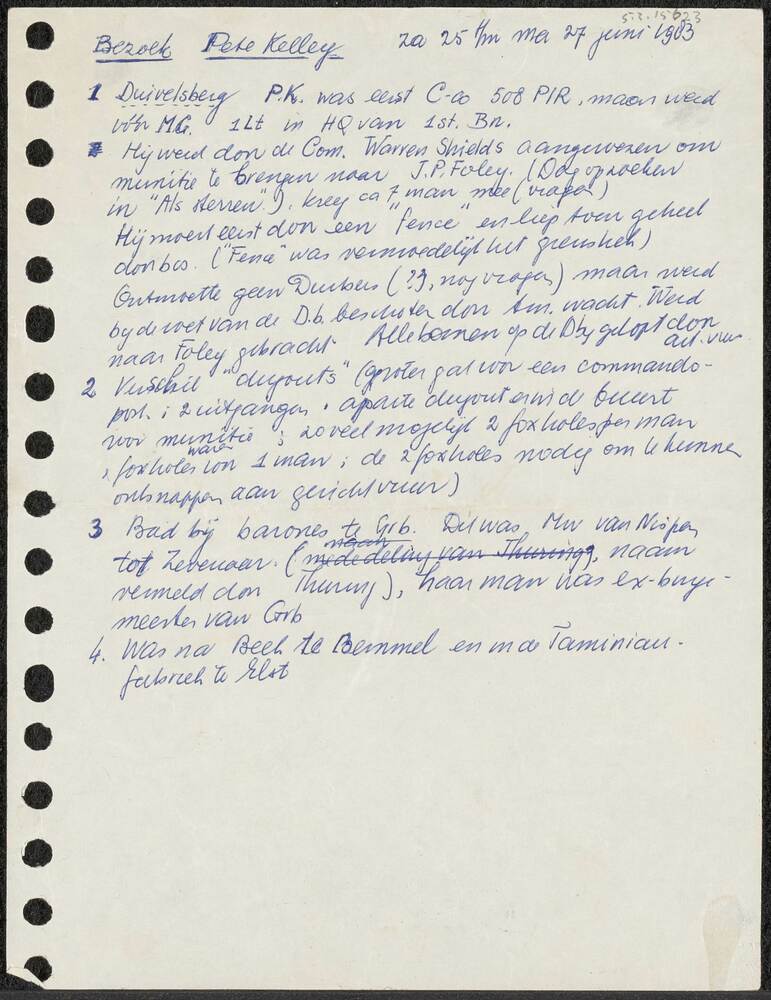 Bezoek Pete Kelley za 25 t/m ma 27 juni 1983
1 Duivelsberg P.K. was eerst C-co 508 PIR, maar werd
vóór M.G. 1Lt in HQ van 1st. Bn.
Hij werd door de Com. Warren Shields aangewezen om
munitie te brengen naar J.P. Foley. (Dag opzoeken
in "Als sterren"). kreeg ca 7 man mee (vragen)
Hij moest eerst door een "fence" en liep toen geheel
door bos. ("Fence" was vermoedelijk het grenshek)
Ontmoette geen Duitsers (?, nog vragen) maar werd
bij de voet van de D.b. beschoten door Am. wacht. Werd
naar Foley gebracht. Alle bomen op de Dbg gelopt door
art. vuur
2 Verschil "dugouts" (groter gat voor een commando-
post. ; 2 uitgangen. aparte dugout in de buurt
voor munitie ; zoveel mogelijk 2 foxholes per man
, foxholes waren voor 1 man ; de 2 foxholes nodig om te kunnen
ontsnappen aan gericht vuur)
3 Bad bij barones te Grb. Dit was Mw van Nispen
tot Zevenaar. (mededeling van Thuring, naam
vermeld door Thuring), haar man was ex-burge-
meester van Grb
4. Was na Beek te Bemmel en in de Taminiau-
fabriek te Elst